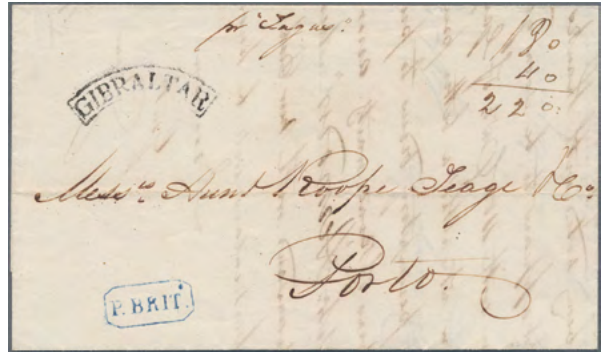 pr Tagus.
180
40
220
GIBRALTAR
Messrs Hunt Roope Teage & Co.
Porto.
P. BRIT.